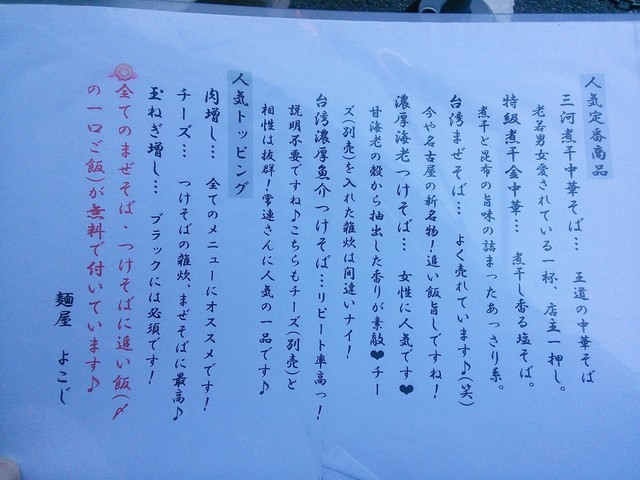 人気定番商品
三河煮干中華そば… 王道の中華そば
老若男女愛されている一杯、店主一押し。
特級煮干金中華… 煮干し香る塩そば。
煮干と昆布の旨味の詰まったあっさり系。
台湾まぜそば… よく売れています♪(笑)
今や名古屋の新名物!追い飯旨しですね!
濃厚海老つけそば… 女性に人気です❤
甘海老の殻から抽出した香りが素敵❤チー
ズ(別売)を入れた雑炊は間違いナイ!
台湾濃厚魚介つけそば…リピート率高っ!
説明不要ですね♪こちらもチーズ(別売)と
相性は抜群!常連さんに人気の一品です♪
人気トッピング
肉増し… 全てのメニューにオススメです!
チーズ… つけそばの雑炊、まぜそばに最高♪
玉ねぎ増し… ブラックには必須です!
全てのまぜそば・つけそばに追い飯(〆
の一口ご飯)が無料で付いています♪
麺屋 よこじ